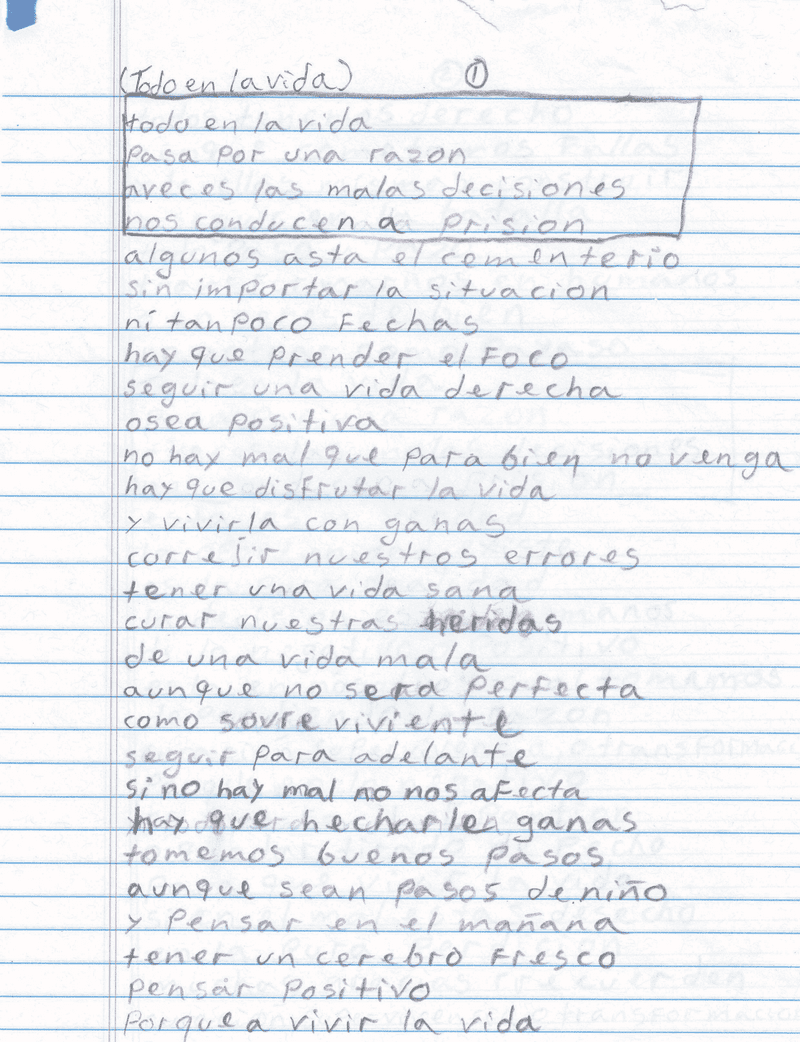 (Todo en la vida) ①
todo en la vida
pasa por una razon
aveces las malas decisiones
nos conducen a prision
algunos asta el cementerio
sin importar la situacion
ni tanpoco fechas
hay que prender el foco
seguir una vida derecha
osea positiva
no hay mal que para bien no venga
hay que disfrutar la vida
y vivirla con ganas
correjir nuestros errores
tener una vida sana
curar nuestras heridas
de una vida mala
aunque no sera perfecta
como sovre viviente
seguir para adelante
si no hay mal no nos afecta
hay que hecharle ganas
tomemos buenos pasos
aunque sean pasos de niño
y pensar en el mañana
tener un cerebro fresco
pensar positivo
porque a vivir la vida